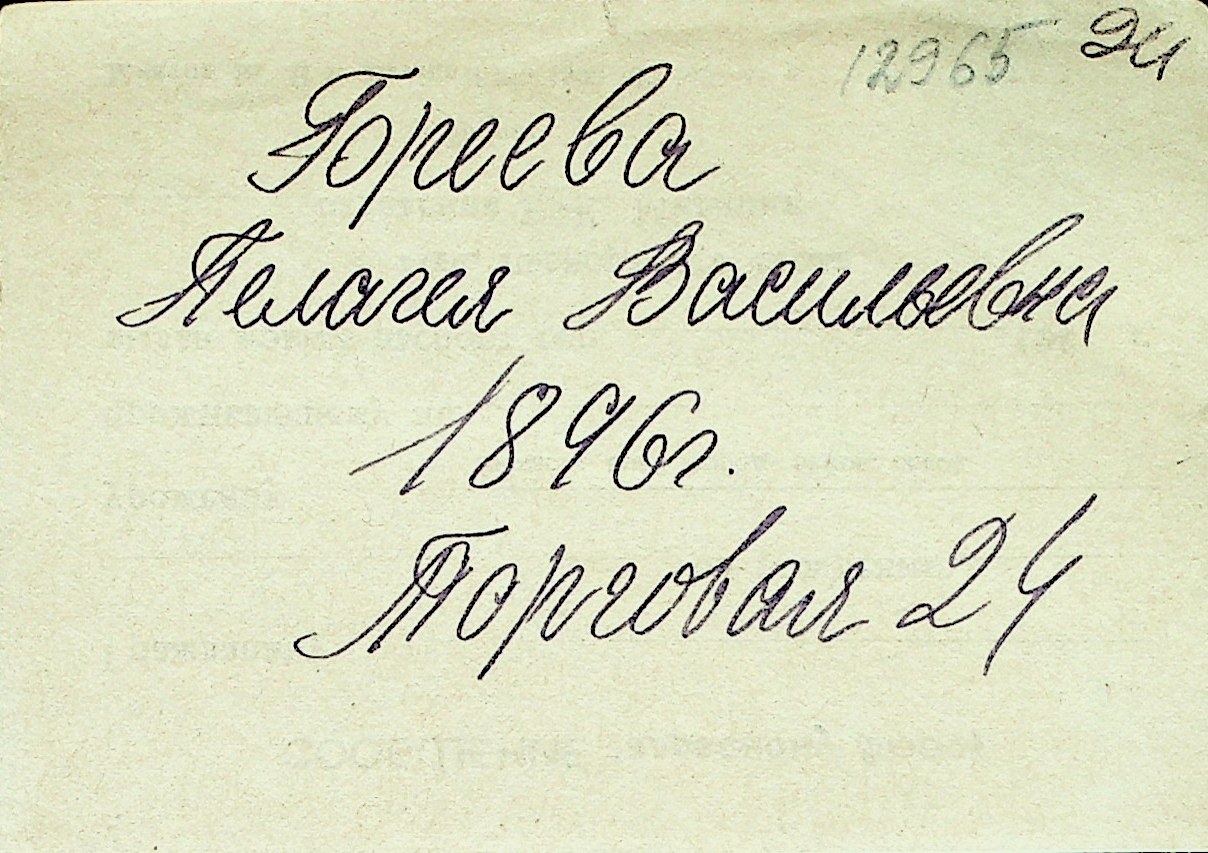 12965 24
Гореева
Пелагея Васильевна
1896г.
Торговая 24